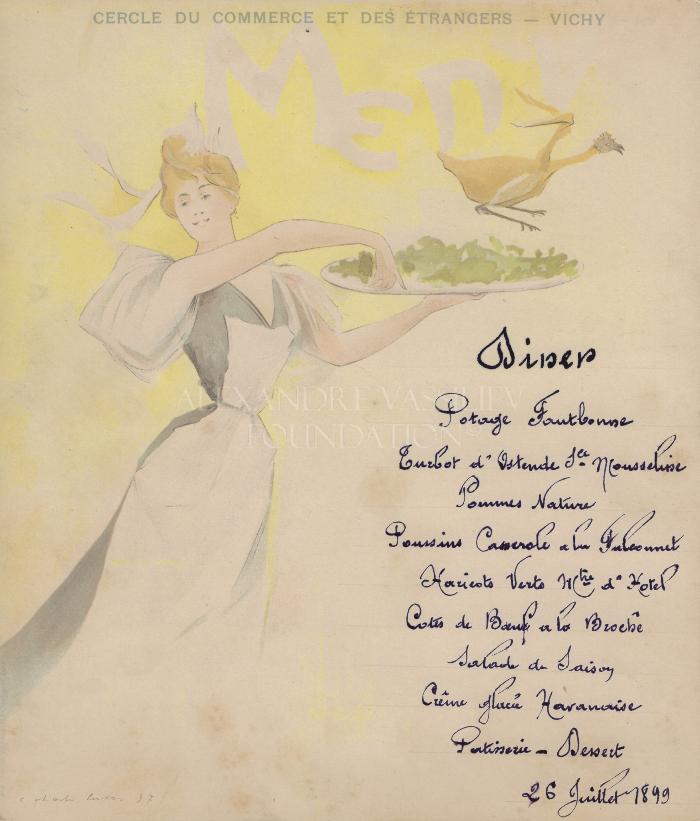 CERCLE DU COMMERCE ET DES ÉTRANGERS — VICHY
MENU
Diner
Potage Faubonne
Turbot d'Ostende Sce Mousseline
Pommes Nature
Poussins Casserole a la
Haricots Verts Mtre d'Hotel
Cotes de Bœuf a la Broche
Salade de Saison
Crême glacée Havanaise
Patisserie — Dessert
26 Juillet 1899
ALEXANDRE VASSILIEV
FOUNDATION